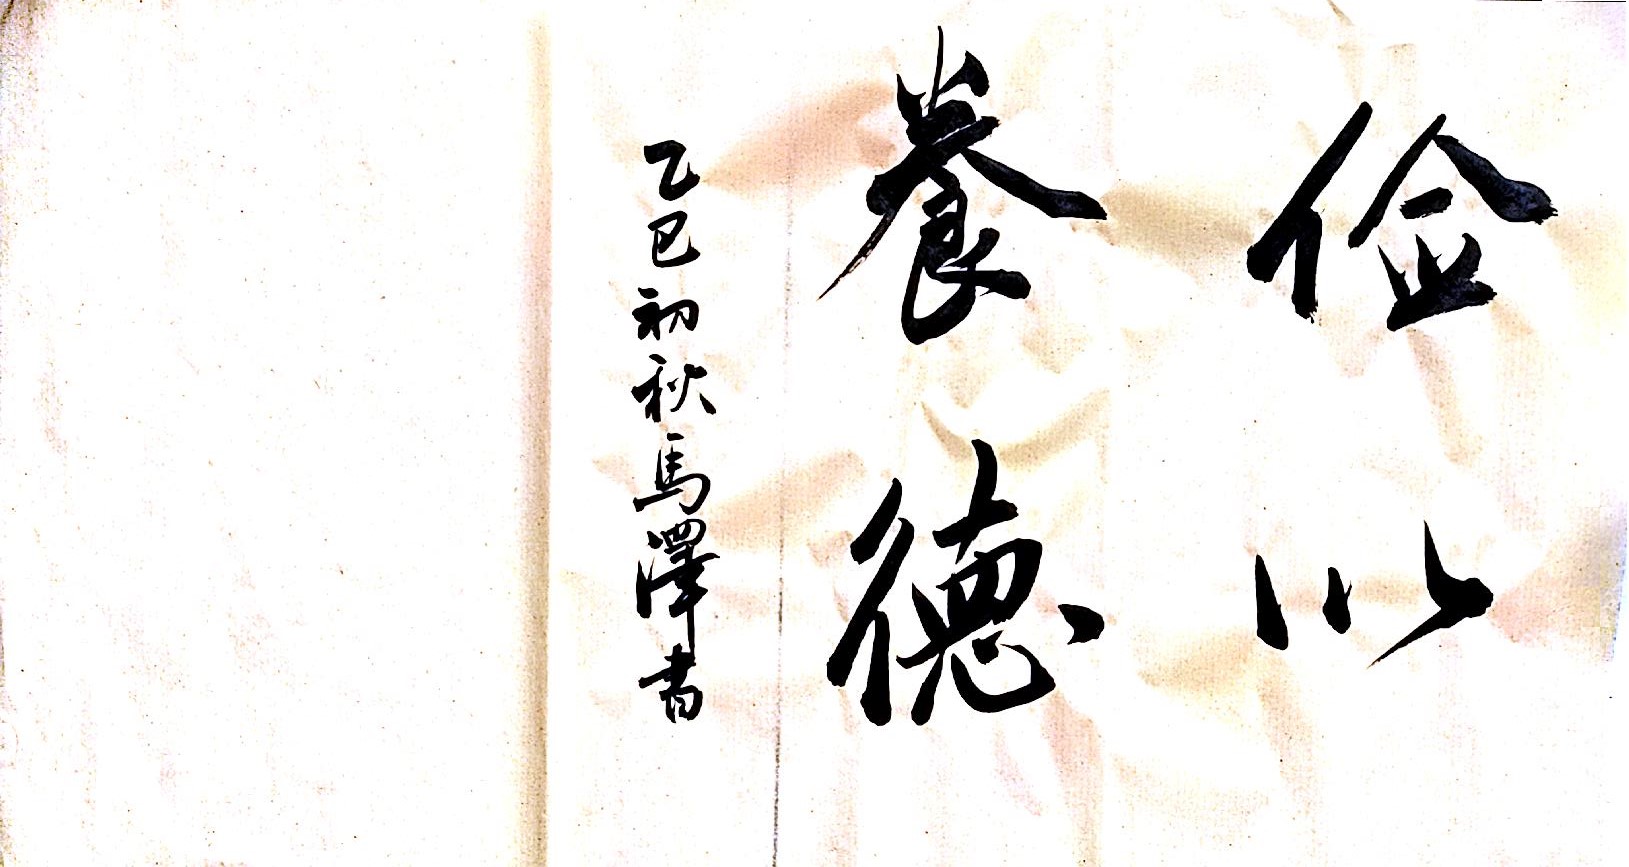 儉以
養德
乙巳初秋馬澤書